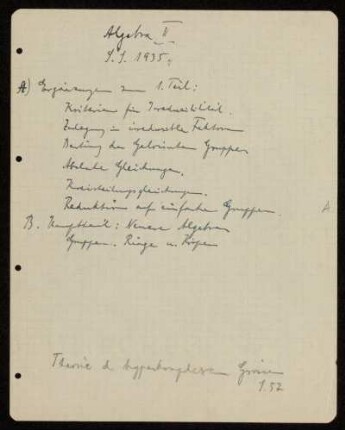 Algebra II
S.S. 1935.
A) Ergänzungen zum 1. Teil:
Kriterien für Irreduzibilität.
Zerlegung in irreduzible Faktoren
der Galoisschen Gruppe.
Gleichungen.
Kreisteilungsgleichungen.
Reduktion auf einfachen Gruppen.
A
B. Hauptteil: Neuere Algebra
Gruppen. Ringe u. Körper
Theorie d. hyperkomplexen Grössen
S. 52